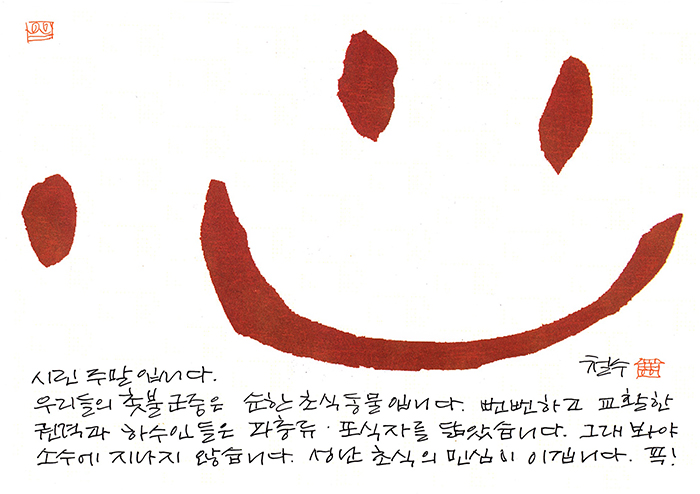 철수
시린 주말입니다.
우리들의 촛불군중은 순한 초식동물입니다. 뻔뻔하고 교활한
권력과 하수인들은 파충류·포식자를 닮았습니다. 그래봐야
소수에 지나지 않습니다. 성난 초식의 민심이 이깁니다. 픽!